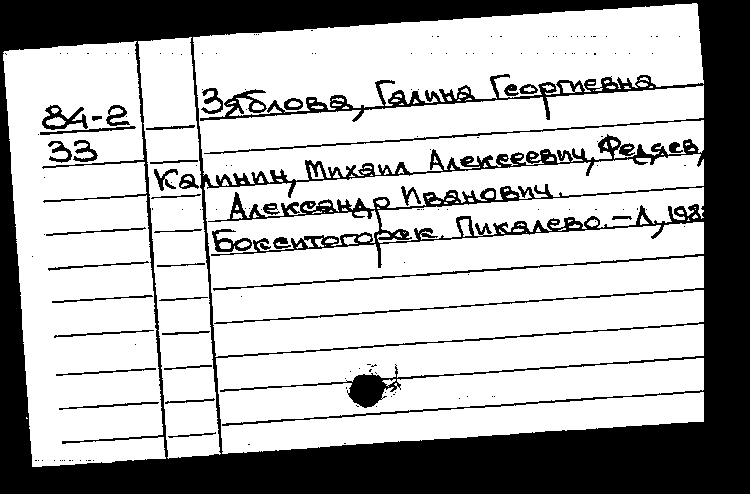 84-2
33
Зяблова, Галина Георгиевна
Калинин, Михаил Алексеевич, Федяев,
Александр Иванович.
Бокситогорск. Пикалево. – Л,